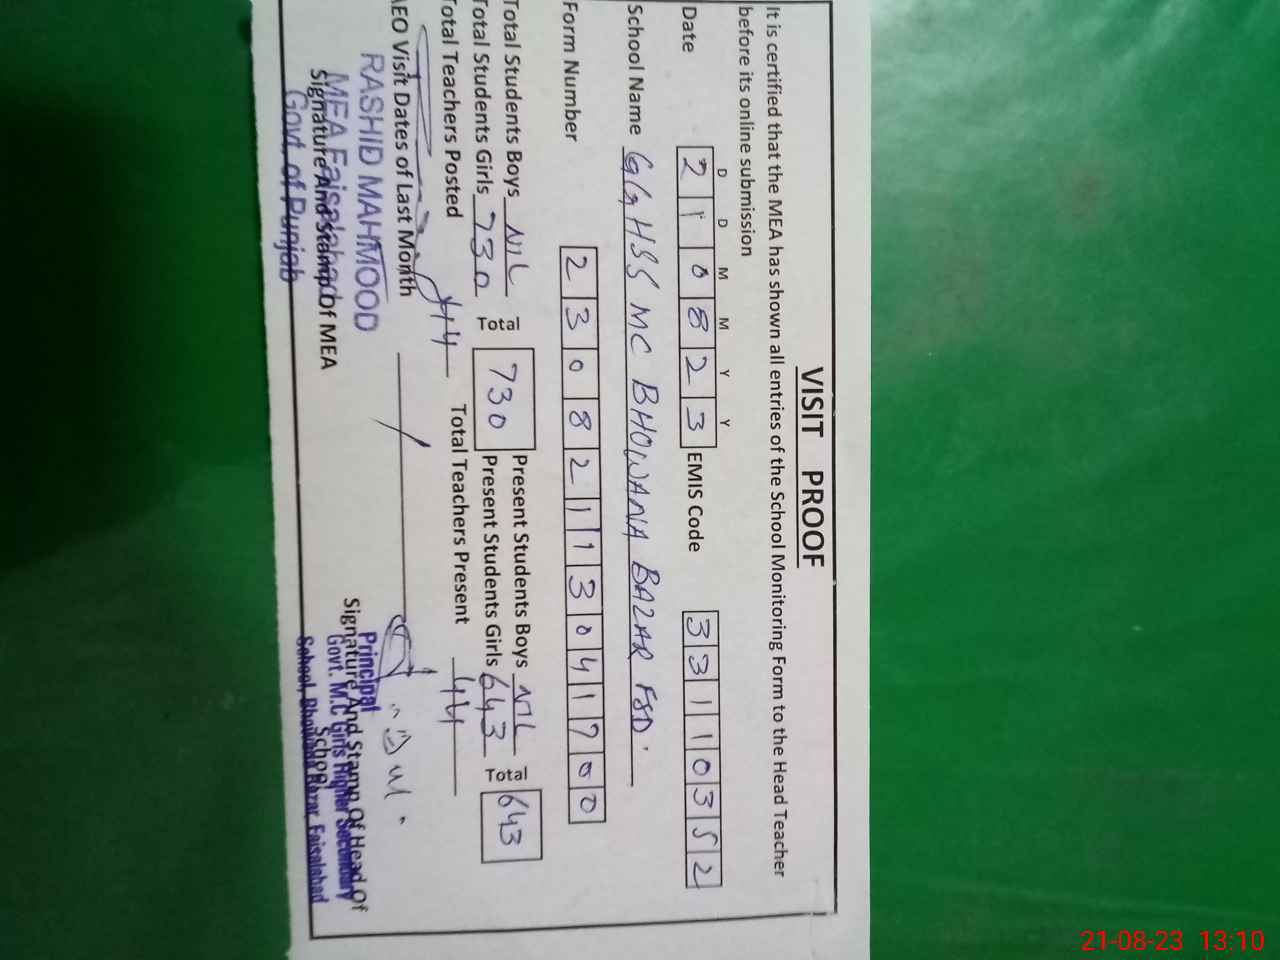 VISIT PROOF
It is certified that the MEA has shown all entries of the School Monitoring Form to the Head Teacher
before its online submission
D D M M Y Y
Date 2 1 0 8 2 3 EMIS Code 3 3 1 1 0 3 5 2
School Name GGHSS MC BHOWANA BAZAR FSD.
Form Number 2 3 0 8 2 1 1 3 0 4 1 7 0 0
Total Students Boys NIL Total 730 Present Students Boys NIL Total 643
Total Students Girls 730 Present Students Girls 643
Total Teachers Posted 44 Total Teachers Present 44
AEO Visit Dates of Last Month
RASHID MAHMOOD
MEA Faisalabad
Govt. of Punjab
Signature And Stamp of MEA
Signature And Stamp Of Head Of
School
Principal
Govt. M.C Girls Higher Secondary
School, Bhowana Bazar, Faisalabad
21-08-23 13:10